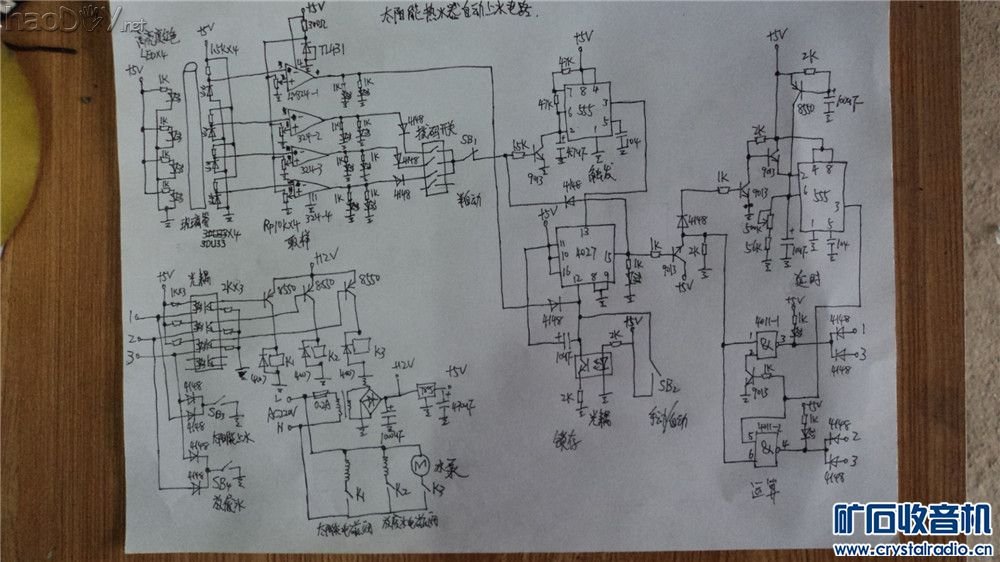 haoDIY.net
太阳能热水器自动上水电路.
LED×4
+5V
+5V
1.5K×4
+5V
300Ω
TL431
1K
1K
1K
1K
LM324-1
324-2
324-3
324-4
1K
1K
1K
1K
1K
1K
1K
4148
4148
4148
开关
SB1
半自动
玻璃管
3DU33
Rp10K×4
取样
+5V
47K
47K
15K
7
8
4
6
555
3
2
1
5
104
9013
触发
4148
+5V
11
13
10
4027
15
16
12
8
9
4148
10uF
2K
光耦
锁存
1K
1K
9013
+5V
4148
2K
1K
+5V
2K
SB2
手动/自动
+5V
2K
8550
100uF
2K
9013
9013
2
4
8
6
555
3
1
5
500K
56K
10uF
104
延时
+5V
1K
4011-1
1
&
3
2
1K
9013
4148
1
3
4148
+5V
1K
4011-2
5
&
4
6
4148
2
3
4148
运算
+5V
光耦
1K×3
2K×3
+12V
8550
8550
8550
1
2
3
K1
K2
K3
4007
4007
4007
4148
SB3
太阳能上水
4148
SB4
放水
L
AC220V
N
0.2A
+12V
1000uF
7805
+5V
470uF
K1
K2
K3
M
水泵
矿石收音机
www.crystalradio.cn